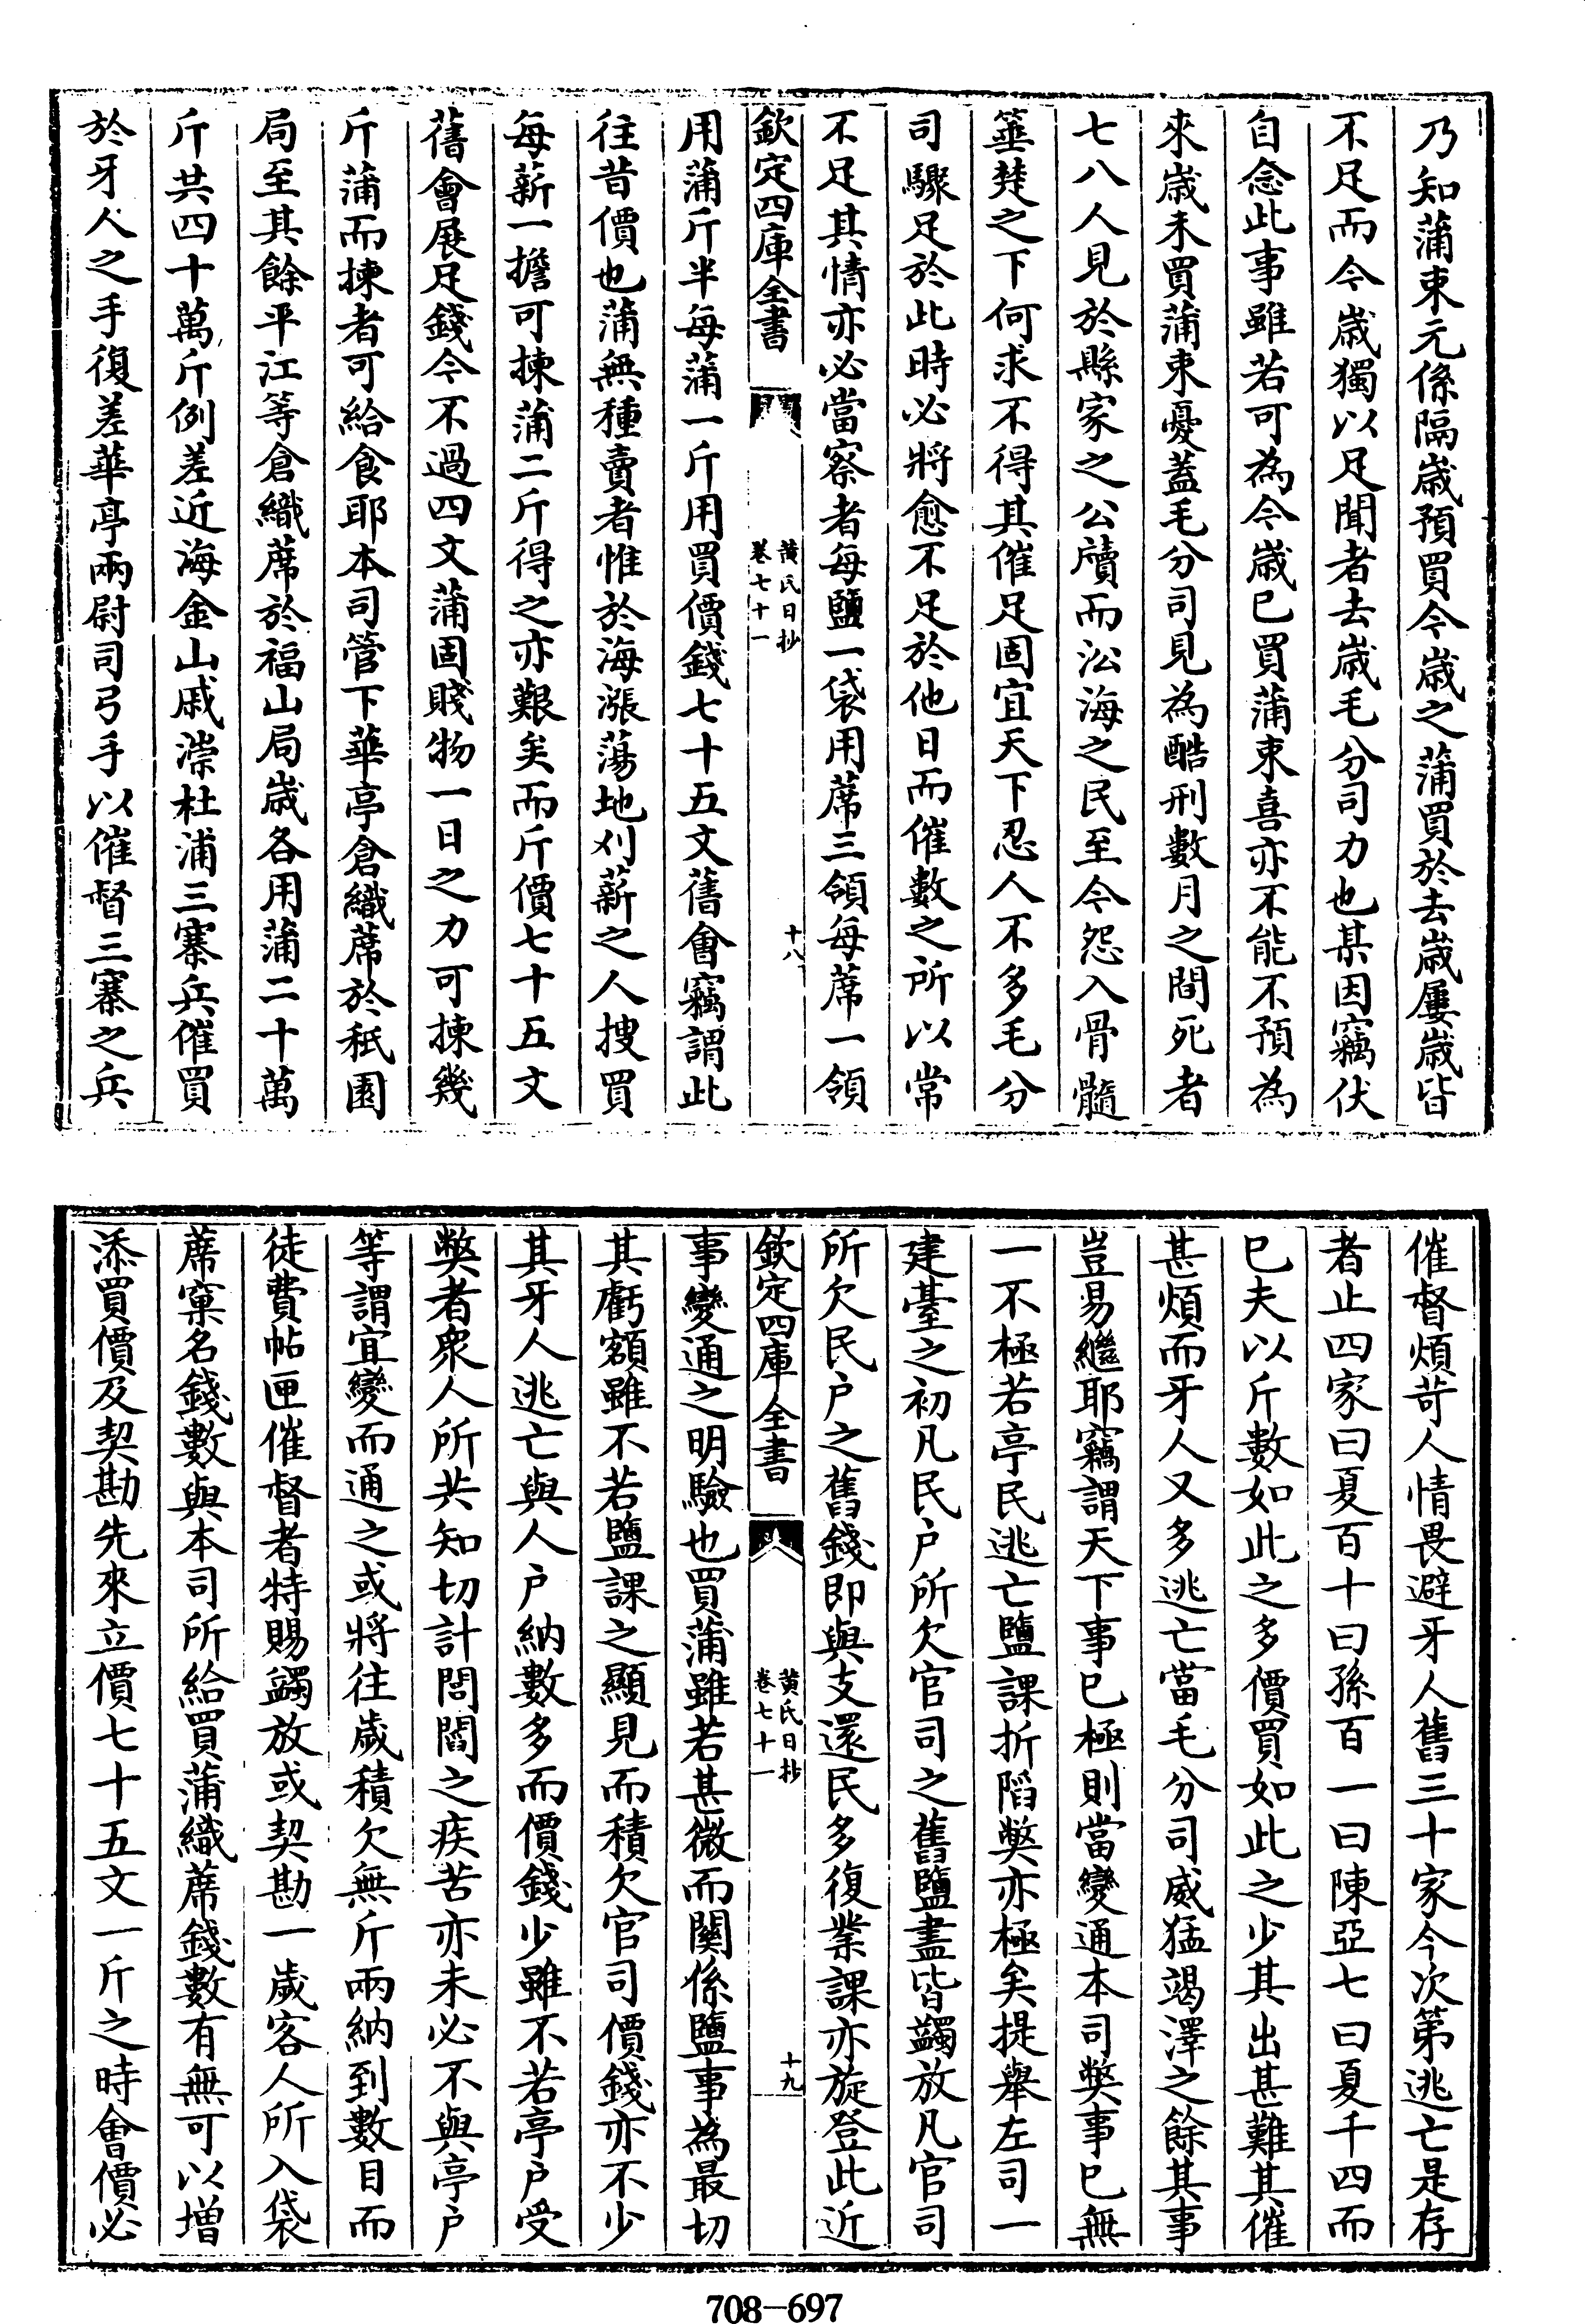 乃知蒲束元係隔嵗預買今嵗之蒲買於去嵗屢嵗皆
不足而今嵗獨以足聞者去嵗毛分司力也某因竊伏
自念此事雖若可為今嵗已買蒲束喜亦不能不預為
來嵗未買蒲束憂蓋毛分司見為酷刑數月之間死者
七八人見於縣家之公牘而㳂海之民至今怨入骨髓
箠楚之下何求不得其催足固宜天下忍人不多毛分
司驟足於此時必將愈不足於他日而催數之所以常
不足其情亦必當察者每鹽一袋用蓆三領每蓆一領
欽定四庫全書
黃氏日抄
卷七十一
十八
用蒲斤半每蒲一斤用買價錢七十五文舊會竊謂此
往昔價也蒲無種賣者惟於海漲蕩地刈薪之人搜買
每薪一擔可揀蒲二斤得之亦艱矣而斤價七十五文
舊會展足錢今不過四文蒲固賤物一日之力可揀幾
斤蒲而揀者可給食耶本司管下華亭倉織蓆於秖園
局至其餘平江等倉織蓆於福山局嵗各用蒲二十萬
斤共四十萬斤例差近海金山戚漴杜浦三寨兵催買
於牙人之手復差華亭兩尉司弓手以催督三寨之兵
催督煩苛人情畏避牙人舊三十家今次第逃亡是存
者止四家曰夏百十曰孫百一曰陳亞七曰夏千四而
已夫以斤數如此之多價買如此之少其出甚難其催
甚煩而牙人又多逃亡當毛分司威猛竭澤之餘其事
豈易繼耶竊謂天下事已極則當變通本司弊事已無
一不極若亭民逃亡鹽課折䧟弊亦極矣提舉左司一
建臺之初凡民户所欠官司之舊鹽盡皆蠲放凡官司
所欠民户之舊錢即與支還民多復業課亦旋登此近
欽定四庫全書
黃氏日抄
卷七十一
十九
事變通之明驗也買蒲雖若甚微而關係鹽事為最切
其虧額雖不若鹽課之顯見而積欠官司價錢亦不少
其牙人逃亡與人户納數多而價錢少雖不若亭户受
弊者衆人所共知切計閭閻之疾苦亦未必不與亭户
等謂宜變而通之或將往歲積欠無斤兩納到數目而
徒費帖匣催督者特賜蠲放或契勘一歲客人所入袋
蓆窠名錢數與本司所給買蒲織蓆錢數有無可以增
添買價及契勘先來立價七十五文一斤之時會價必
708—697